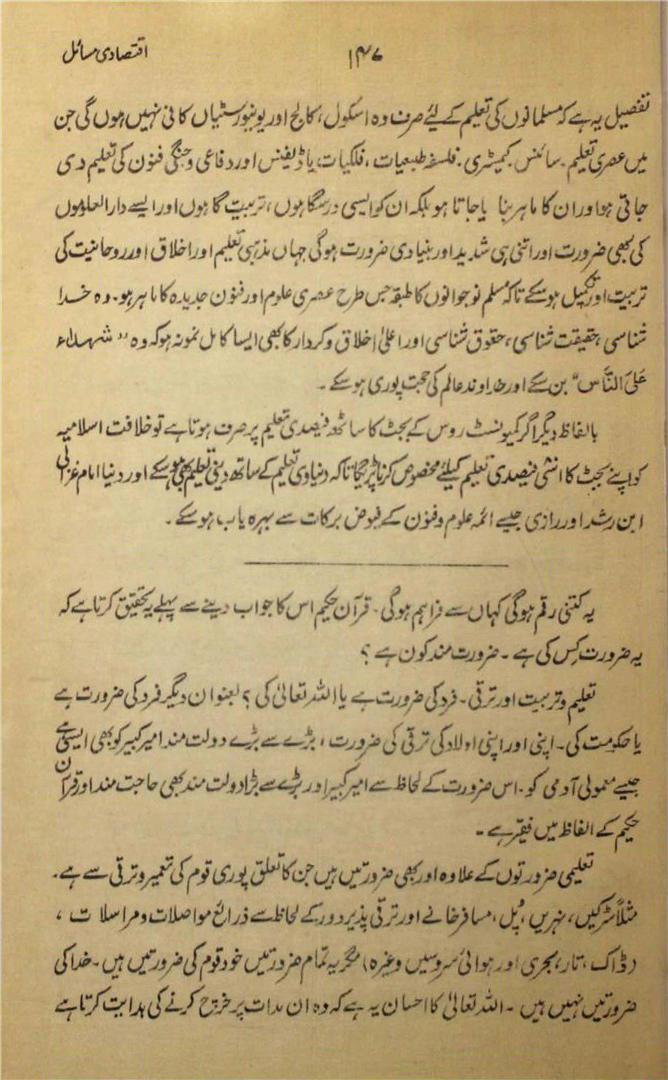 ۱۴۷
اقتصادی مسائل
تفصیل یہ ہے کہ مسلمانوں کی تعلیم کے لئے صرف وہ اسکول، کالج اور یونیورسٹیاں کافی نہیں ہوں گی جن
میں عصری تعلیم۔ سائنس۔ کیمسٹری۔ فلسفہ طبعیات، فلکیات، یا ڈیفینس اور دفاعی و جنگی فنون کی تعلیم دی
جاتی ہو اور ان کا ماہر بنا یا جاتا ہو بلکہ ان کو ایسی درسگاہوں، تربیت گاہوں اور ایسے دارالعلوموں
کی بھی ضرورت اور اتنی ہی شدید اور بنیادی ضرورت ہوگی جہاں مذہبی تعلیم اور اخلاق اور روحانیت کی
تربیت اور تکمیل ہوسکے تاکہ مُسلم نوجوانوں کا طبقہ جس طرح عصری علوم اور فنون جدیدہ کا ماہر ہو۔ وہ خدا
شناسی، حقیقت شناسی، حقوق شناسی اور اعلیٰ اخلاق و کردار کا بھی ایسا کامل نمونہ ہو کہ وہ "شہداء
عَلَی النَّاس" بن سکے اور خداوند عالم کی حجت پوری ہوسکے۔
بالفاظ دیگر اگر کمیونسٹ روس کے بجٹ کا ساٹھ فیصدی تعلیم پر صرف ہوتا ہے تو خلافت اسلامیہ
کو اپنے بجٹ کا اسّی فیصدی تعلیم کیلئے مخصوص کرنا پڑیگا تاکہ دنیاوی تعلیم کے ساتھ دینی تعلیم بھی ہوسکے اور دنیا امام غزالی
ابن رشد اور رازی جیسے ائمہ علوم و فنون کے فیوض برکات سے بہرہ یاب ہوسکے۔
یہ کتنی رقم ہوگی کہاں سے فراہم ہوگی۔ قرآن حکیم اس کا جواب دینے سے پہلے یہ تحقیق کرتا ہے کہ
یہ ضرورت کِس کی ہے۔ ضرورت مند کون ہے؟
تعلیم و تربیت اور ترقی۔ فرد کی ضرورت ہے یا اللہ تعالیٰ کی؟ بعنوان دیگر فرد کی ضرورت ہے
یا حکومت کی۔ اپنی اور اپنی اولاد کی ترقی کی ضرورت، بڑے سے بڑے دولت مند امیر کبیر کو بھی ایسی ہی ہے
جیسے معمولی آدمی کو۔ اس ضرورت کے لحاظ سے امیر کبیر اور بڑے سے بڑا دولت مند بھی حاجت مند اور قرآن
حکیم کے الفاظ میں فقیر ہے۔
تعلیمی ضرورتوں کے علاوہ اور بھی ضرورتیں ہیں جن کا تعلق پوری قوم کی تعمیر و ترقی سے ہے۔
مثلاً سڑکیں، نہریں، پُل، مسافر خانے اور ترقی پذیر دور کے لحاظ سے ذرائع مواصلات و مراسلات،
(ڈاک، تار، بحری اور ہوائی سروسیں وغیرہ) مگر یہ تمام ضرورتیں خود قوم کی ضرورتیں ہیں۔ خدا کی
ضرورتیں نہیں ہیں۔ اللہ تعالیٰ کا احسان یہ ہے کہ وہ ان مدات پر خرچ کرنے کی ہدایت کرتا ہے